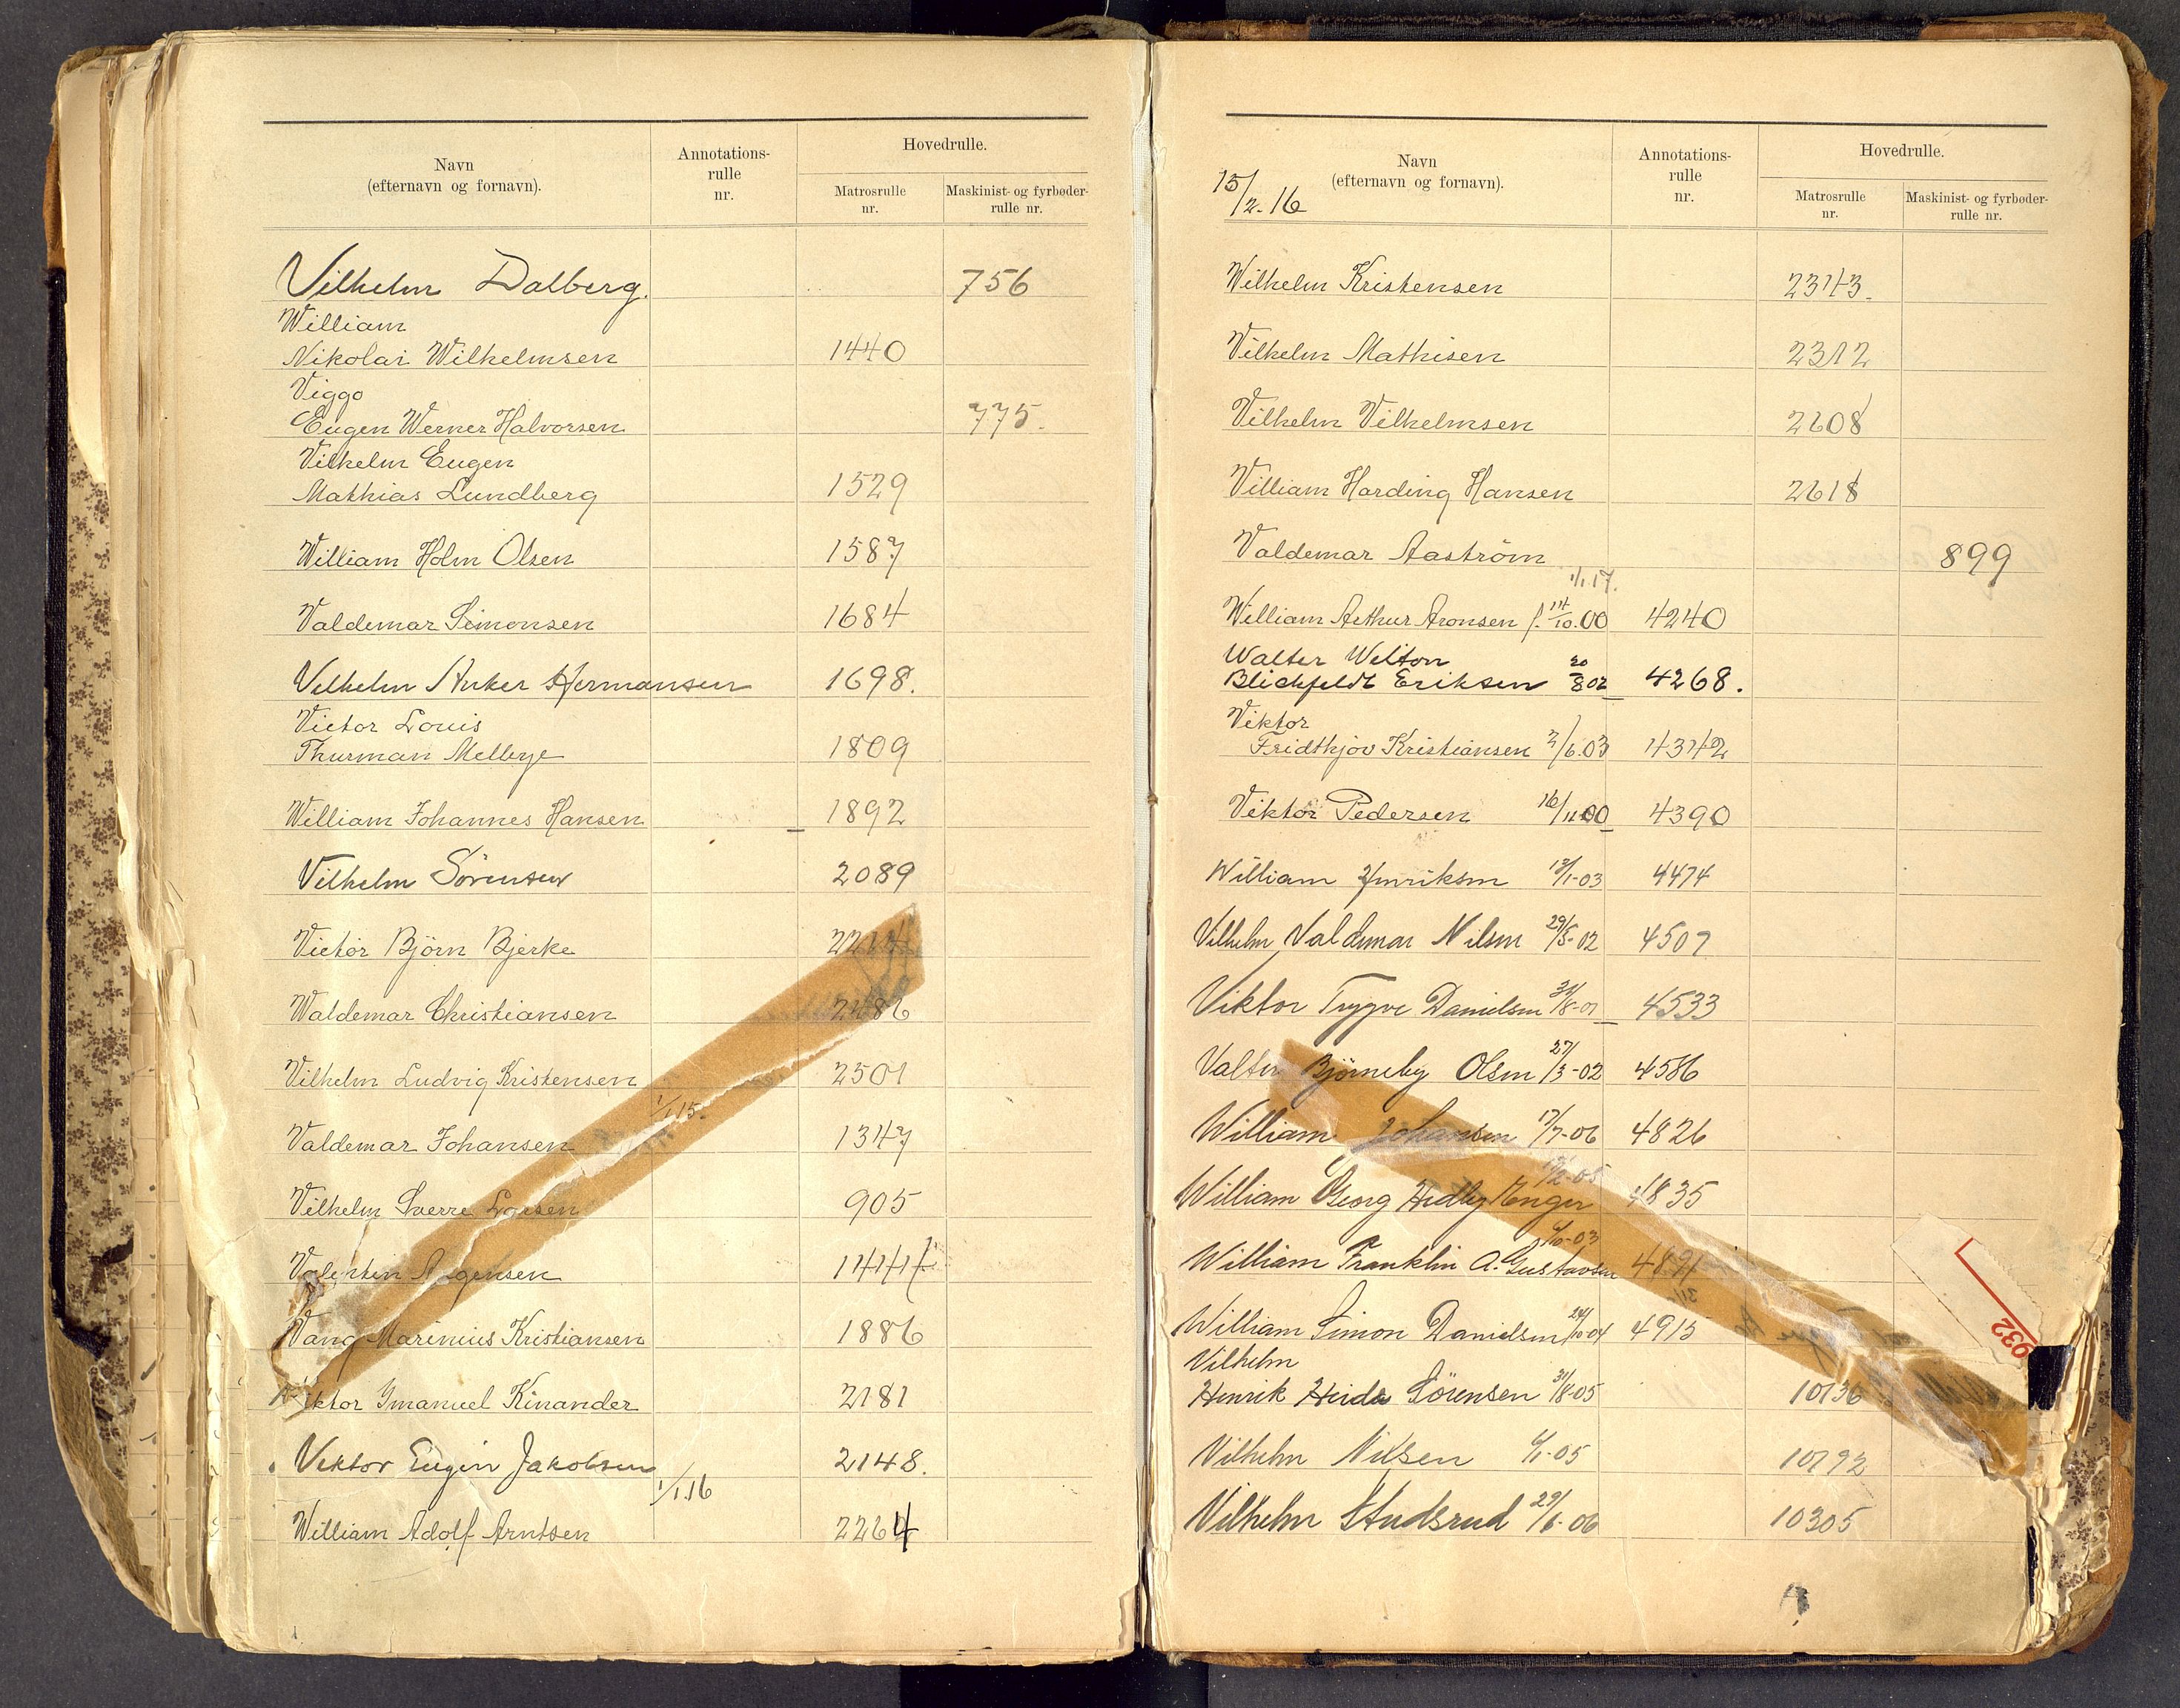 Navn
(efternavn og fornavn).
Annotations-
rulle
nr.
Hovedrulle.
Matrosrulle
nr.
Maskinist- og fyrbøder-
rulle nr.
Vilhelm Dalberg. 756
William
Nikolai Wilhelmsen 1440
Viggo
Eugen Werner Halvorsen 775.
Vilhelm Eugen
Mathias Lundberg 1529
William Holm Olsen 1587
Valdemar Simonsen 1684
Vilhelm Anker Hermansen 1698.
Victor Louis
Thurman Mellbye 1809
William Johannes Hansen 1892
Vilhelm Sörensen 2089
Victor Björn Bjerke
Waldemar Christiansen 2486
Vilhelm Ludvig Kristensen 2501
1/1.15.
Valdemar Johansen 1347
Vilhelm Sverre Larsen 905
Valentin 1444
Vang Marinius Kristiansen 1886
Viktor Imanuel Kinander 2181
Viktor Eugin Jakobsen 2148.
1/1.16
William Adolf Arntsen 2264
15/2.16
Navn
(efternavn og fornavn).
Annotations-
rulle
nr.
Hovedrulle.
Matrosrulle
nr.
Maskinist- og fyrbøder-
rulle nr.
Wilhelm Kristensen 2343.
Vilhelm Mathisen 2312
Vilhelm Vilhelmsen 2608
Villiam Harding Hansen 2618
Valdemar Aaström 899
1/1.17.
William Arthur Aronsen f. 14/10.00 4240
Walter Welton
Blichfeldt Eriksen 20/8 02 4268.
Viktor
Fridthjov Kristiansen 2/6.03 4342
Viktor Pedersen 16/11.00 4390
William Henriksen 13/1-03 4474
Vilhelm Valdemar Nilsen 29/5-02 4507
Viktor Trygve Danielsen 31/8-01 4533
Valter Björneby Olsen 27/3-02 4586
William Johansen 17/7-06 4826
William Georg Hedley Enger 4835
William Franklin A. Gustavsen 4891
William Simon Danielsen 24/10-04 4915
Vilhelm
Henrik Sörensen 31/8-05 10136
Vilhelm Nilsen 6/1-05 10192
Vilhelm Studsrud 29/6-06 10305
932